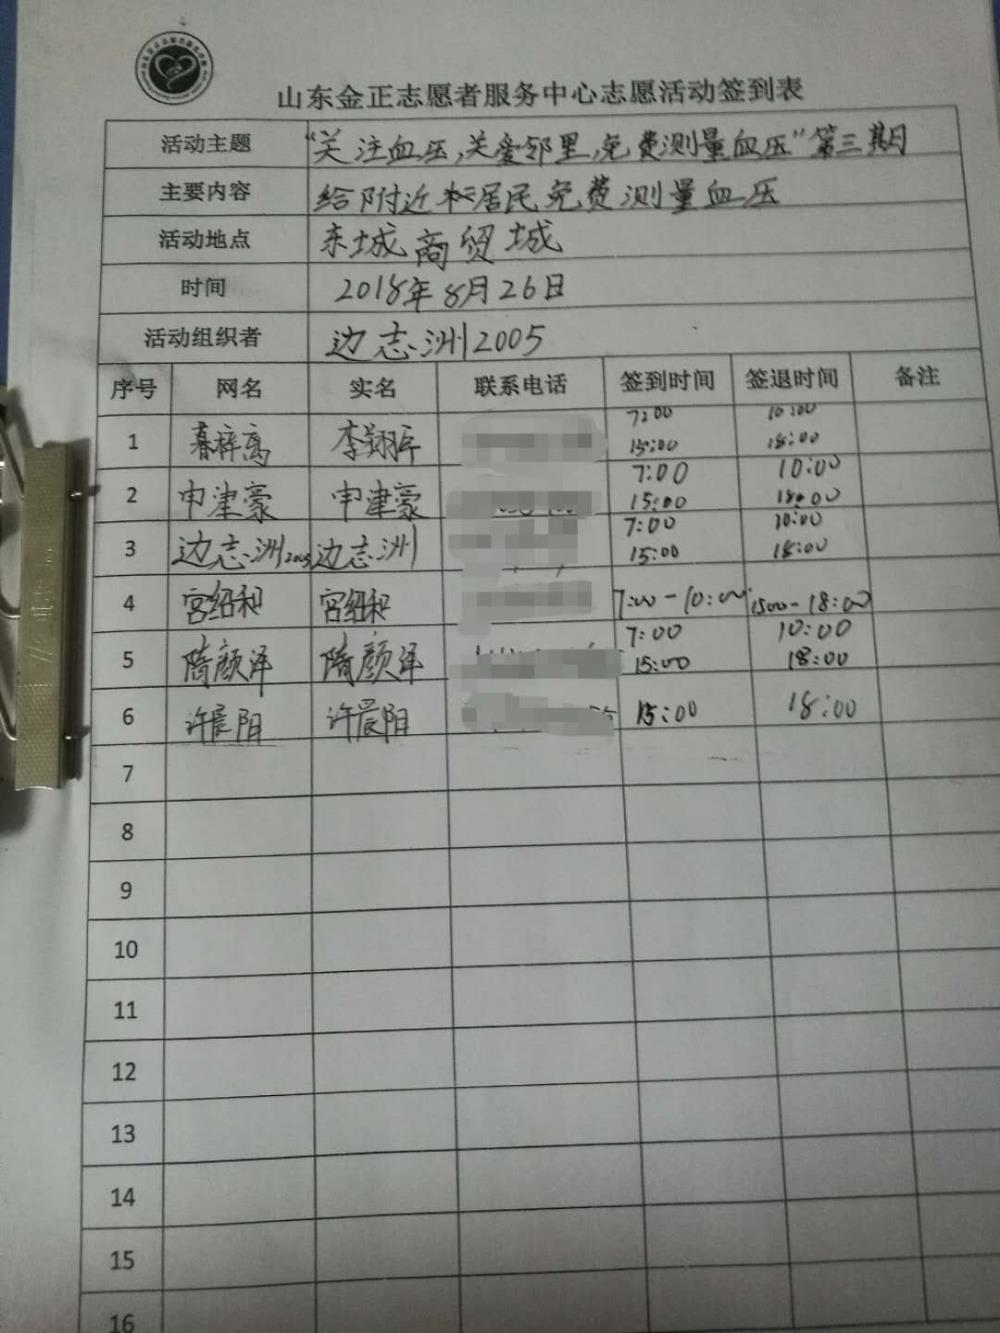 山东金正志愿者服务中心志愿活动签到表
活动主题 "关注血压,关爱邻里,免费测量血压"第三期
主要内容 给附近居民免费测量血压
活动地点 东城商贸城
时间 2018年8月26日
活动组织者 边志洲2005
序号 网名 实名 联系电话 签到时间 签退时间 备注
1 暮梓离 李翔宇 7:00 10:00
15:00 18:00
2 申津豪 申津豪 7:00 10:00
15:00 18:00
3 边志洲2005 边志洲 7:00 10:00
15:00 18:00
4 宫绍和 宫绍和 7:00-10:00 15:00-18:00
5 隋颜泽 隋颜泽 7:00 10:00
15:00 18:00
6 许晨阳 许晨阳 15:00 18:00
7
8
9
10
11
12
13
14
15
16